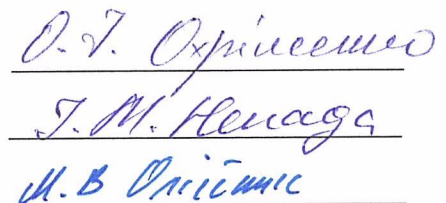 О.Г. Охріменко
Г.М. Ненада
М.В Олійник